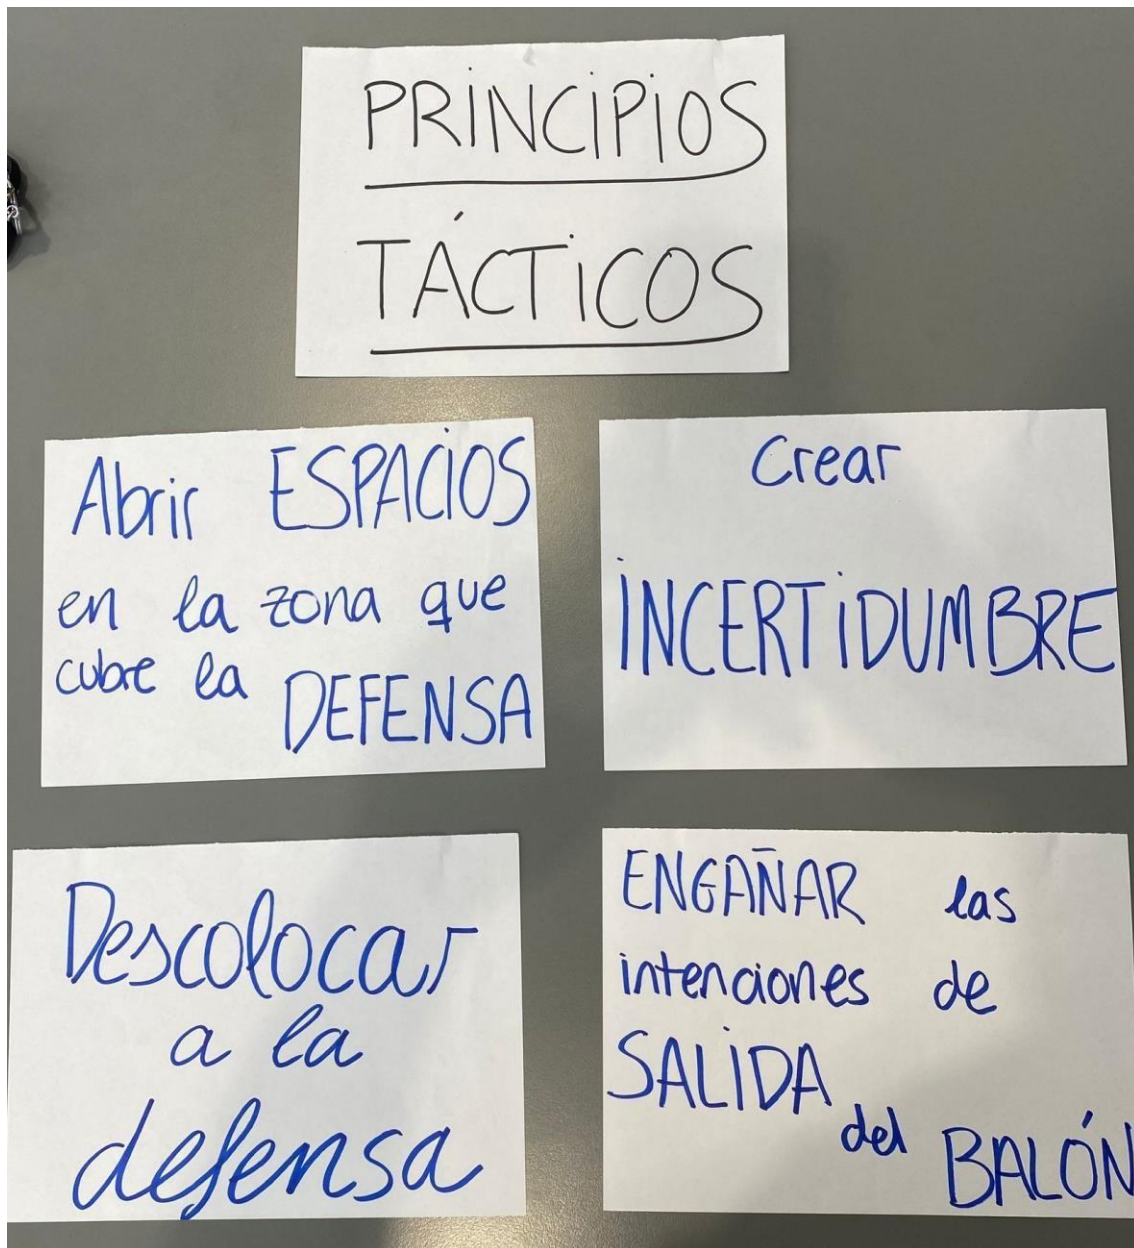 PRINCIPIOS
TÁCTICOS
Abrir ESPACIOS
en la zona que
cubre la DEFENSA
Crear
INCERTIDUMBRE
Descolocar
a la
defensa
ENGAÑAR las
intenciones de
SALIDA
del BALÓN